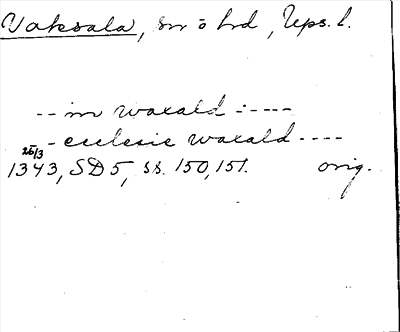 Vaksala, sn o hd, Ups. l.
-- in waxald -:----
- ecclesie waxald ----
25/3
1343, SD 5, ss. 150, 151. orig.